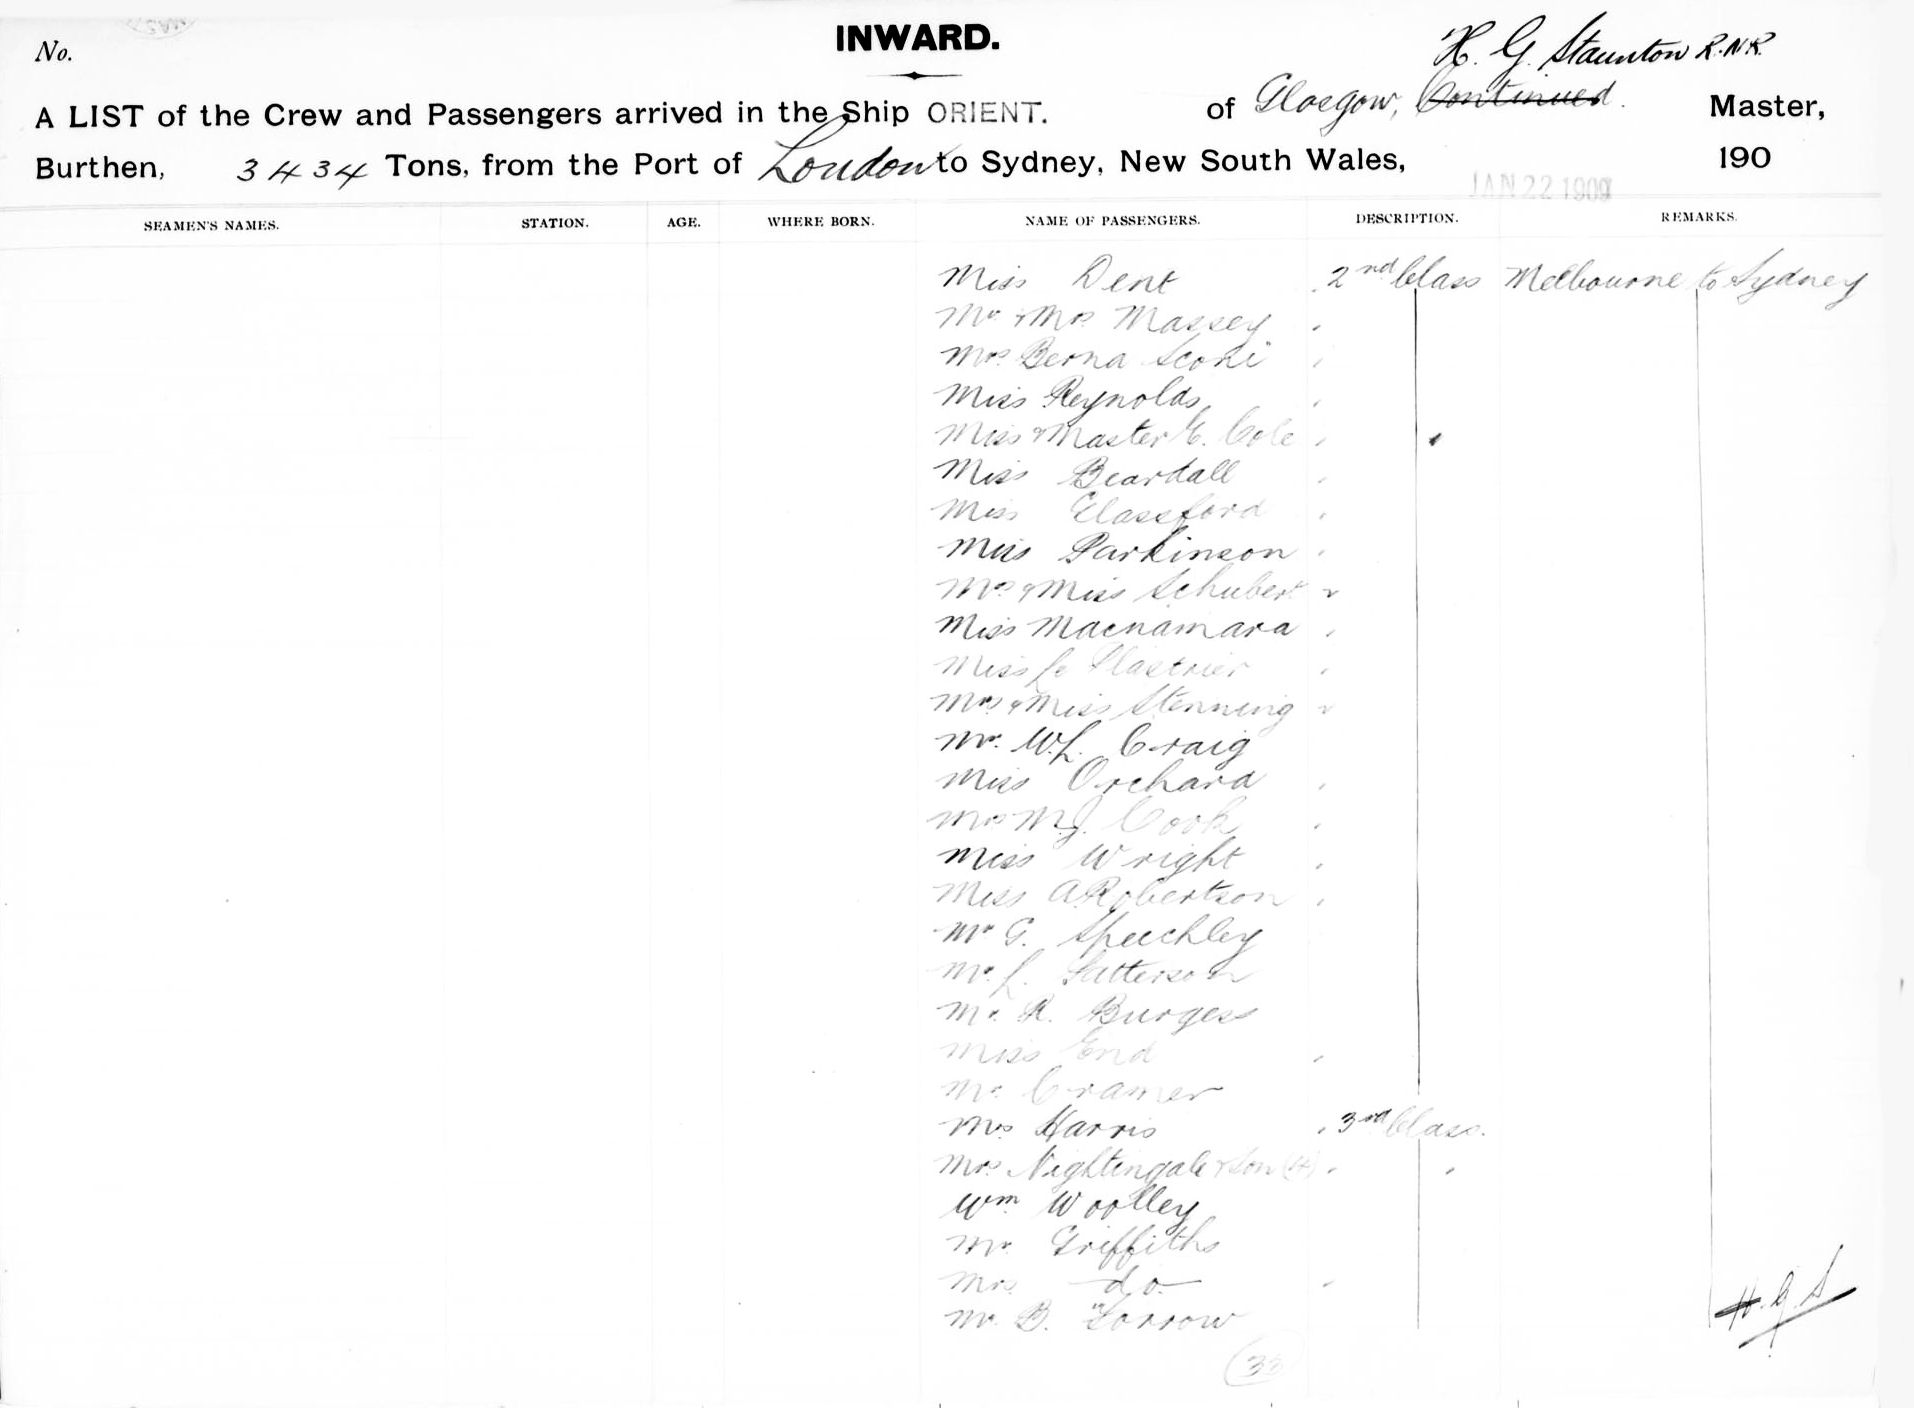 No.
INWARD.
H. G. Staunton R.N.R.
A LIST of the Crew and Passengers arrived in the Ship ORIENT. of Glasgow, Continued. Master,
Burthen, 3434 Tons, from the Port of London to Sydney, New South Wales, 190
JAN 22 1909
SEAMEN'S NAMES. STATION. AGE. WHERE BORN. NAME OF PASSENGERS. DESCRIPTION. REMARKS.
Miss Dent 2nd Class Melbourne to Sydney
Mr & Mrs Massey
Mrs Berna Sconi
Miss Reynolds
Miss & Master E. Cole
Miss Beardall
Miss Glassford
Miss Parkinson
Mrs & Miss Schubert
Miss Macnamara
Miss Le Plastrier
Mrs & Miss Stenning
Mr. W.L. Craig
Miss Orchard
Mrs M.J. Cook
Miss Wright
Miss A Robertson
Mr G. Speechley
Mr. L. Patterson
Mr. R. Burgess
Miss End
Mr. Cramer
Mrs Harris 3rd Class.
Mrs Nightingale & Son (4)
Wm Woolley
Mr. Griffiths
Mrs do
Mr. B. Torrow
H. G. S
33